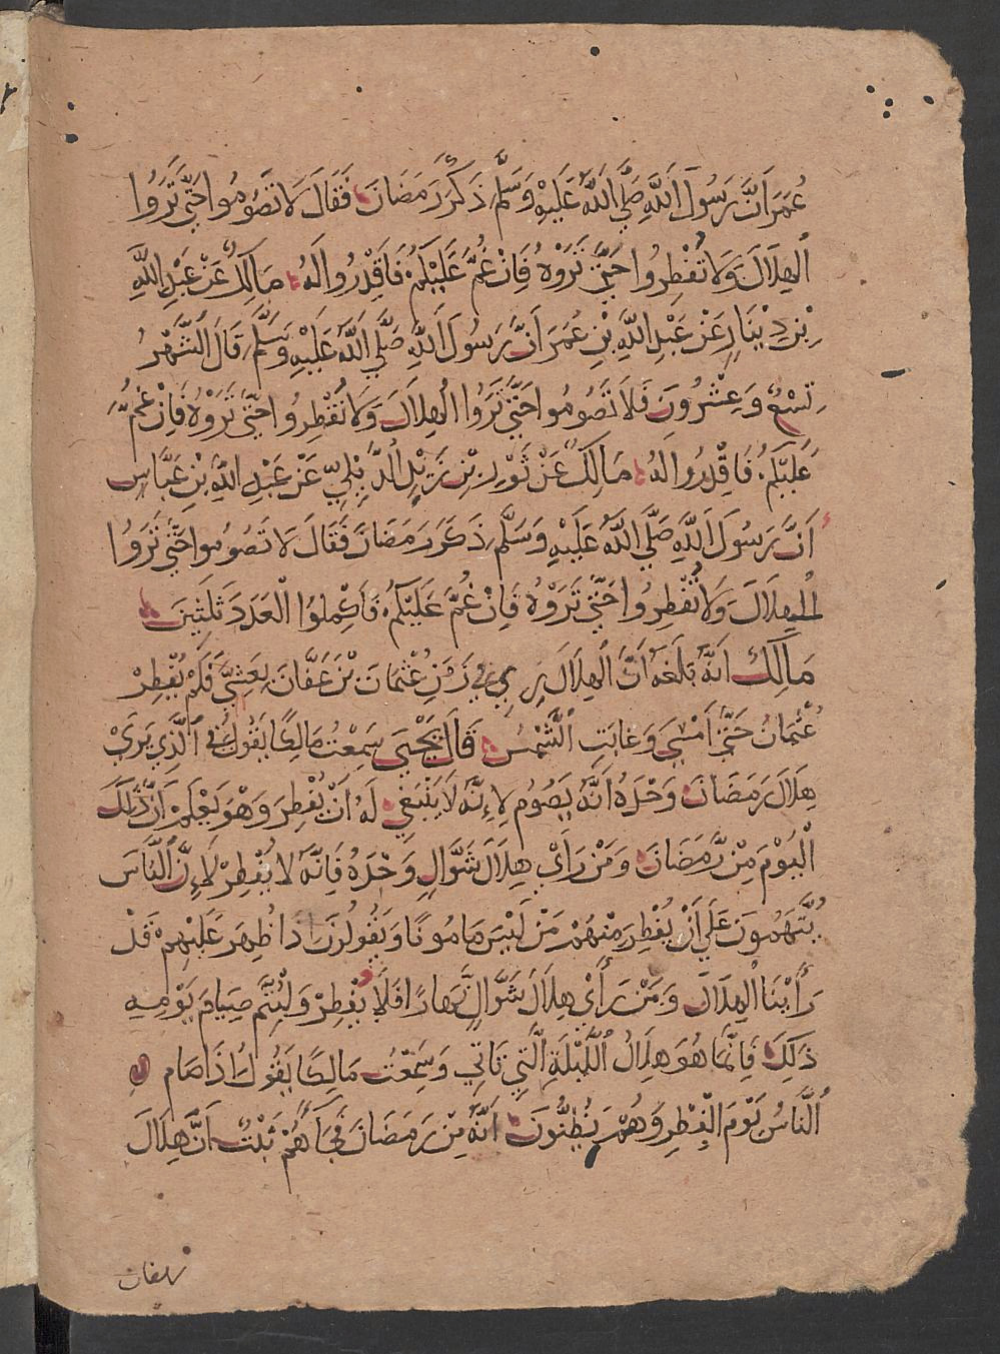 عُمَرَ اَنَّ رَسُولَ اَللَّهِ صَلَّي اَللَّهُ عَلَيْهِ وَسَلَّمَ ذَكَرَ رَمَضَانَ فَقَالَ لَا تَصُومُوا حَتَّي تَرَوُا
اُلْهِلَالَ وَلَا تُفْطِرُوا حَتَّي تَرَوْهُ فَاِنْ غُمَّ عَلَيْكُمْ فَاقْدِرُوا لَهُ مَالِكٌ عَنْ عَبْدِ اللَّهِ
بْنِ دِينَارٍ عَنْ عَبْدِ اللَّهِ بْنِ عُمَرَ اَنَّ رَسُولَ اَللَّهِ صَلَّي اَللَّهُ عَلَيْهِ وَسَلَّمَ قَالَ اَلشَّهْرُ
تِسْعٌ وَعِشْرُونَ فَلَا تَصُومُوا حَتَّي تَرَوُا الْهِلَالَ وَلَا تُفْطِرُوا حَتَّي تَرَوْهُ فَاِنْ غُمَّ
عَلَيْكُمْ فَاقْدِرُوا لَهُ مَالِكٌ عَنْ ثَوْرِ بْنِ زَيْدٍ الدِّيلِيِّ عَنْ عَبْدِ اللَّهِ بْنِ عَبَّاسٍ
اَنَّ رَسُولَ اَللَّهِ صَلَّي اَللَّهُ عَلَيْهِ وَسَلَّمَ ذَكَرَ رَمَضَانَ فَقَالَ لَا تَصُومُوا حَتَّي تَرَوُا
الْهِلَالَ وَلَا تُفْطِرُوا حَتَّي تَرَوْهُ فَاِنْ غُمَّ عَلَيْكُمْ فَاَكْمِلُوا الْعَدَدَ ثَلَثِينَ
مَالِكٌ اَنَّهُ بَلَغَهُ اَنَّ اَلْهِلَالَ رِيَ فِي زَمَنِ عُثْمَانَ بْنِ عَفَّانَ بِعَشِيٍّ فَلَمْ يُفْطِرْ
عُثْمَانُ حَتَّي اَمْسَي وَغَابَتِ الشَّمْسُ قَالَ يَحْيَي سَمِعْتُ مَالِكًا يَقُولُ فِي اَلَّذِي يَرَيْ
هِلَالَ رَمَضَانَ وَحْدَهُ اَنَّهُ يَصُومُ لِاِنَّهُ لَا يَنْبَغِي لَهُ اَنْ يُفْطِرَ وَهْوَ يَعْلَمُ اَنَّ ذَلَكَ
الْيَوْمَ مِنْ رَّمَضَانَ وَمَنْ رَأَيْ هِلَالَ شَوَّالٍ وَحْدَهُ فَاِنَّهُ لَا يُفْطِرْ لِاِنَّ اَلنَّاسَ
يُتَّهَمُونَ عَلَي اَنْ يُفْطِرَ مِنْهُمْ مَنْ لَيْسَ مَامُونًا وَيَقُولُونَ اِذَا ظُهِرَ عَلَيْهِمْ قَدْ
رَأَيْنَا الْهِلَالَ وَمَنْ رَأَيْ هِلَالَ شَوَّالٍ نَّهَارًا فَلَا يُفْطِرْ وَلْيُتِمَّ صِيَامَ يَوْمِهِ
ذَلِكَ فَاِنَّمَا هُوَ هِلَالُ اللَّيْلَةِ اَلَّتِي تَاتِي وَسَمِعْتُ مَالِكًا يَقُولُ اِذَا صَام
اُلنَّاسُ يَوْمَ الْفِطْرِ وَهُمْ يَظُنُّونَ اَنَّهُ مِنْ رَمَضَانَ فَجَآءَهُمْ ثَبْتٌ اَنَّ هِلَالَ
رمضان